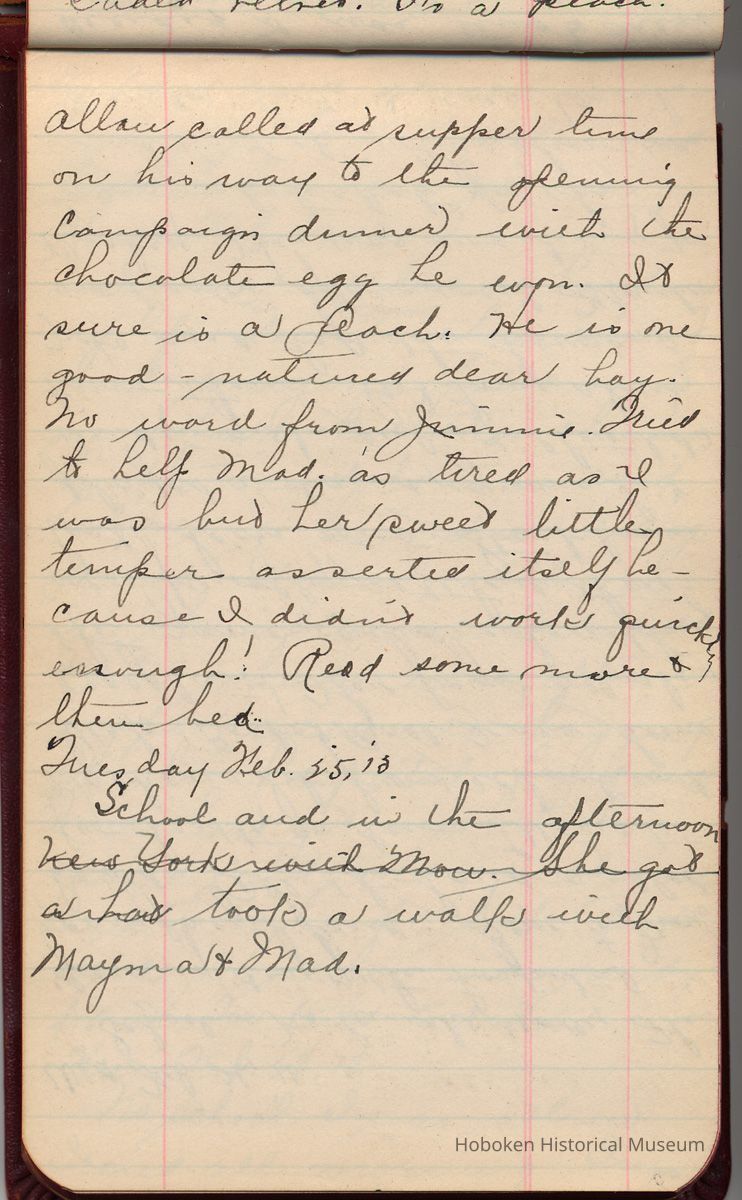 Allan called at supper time
on his way to the opening
campaign dinner with the
chocolate egg he won. It
sure is a peach. He is one
good-natured dear boy.
No word from Jimmie. Tried
to help Mad. as tired as I
was but her sweet little
temper asserted itself be-
cause I didn't work quickly
enough! Read some more &
then bed.
Tuesday Feb. 25, '13
School and in the afternoon
New York with Mow. She got
a hat took a walk with
Mayma & Mad.
Hoboken Historical Museum